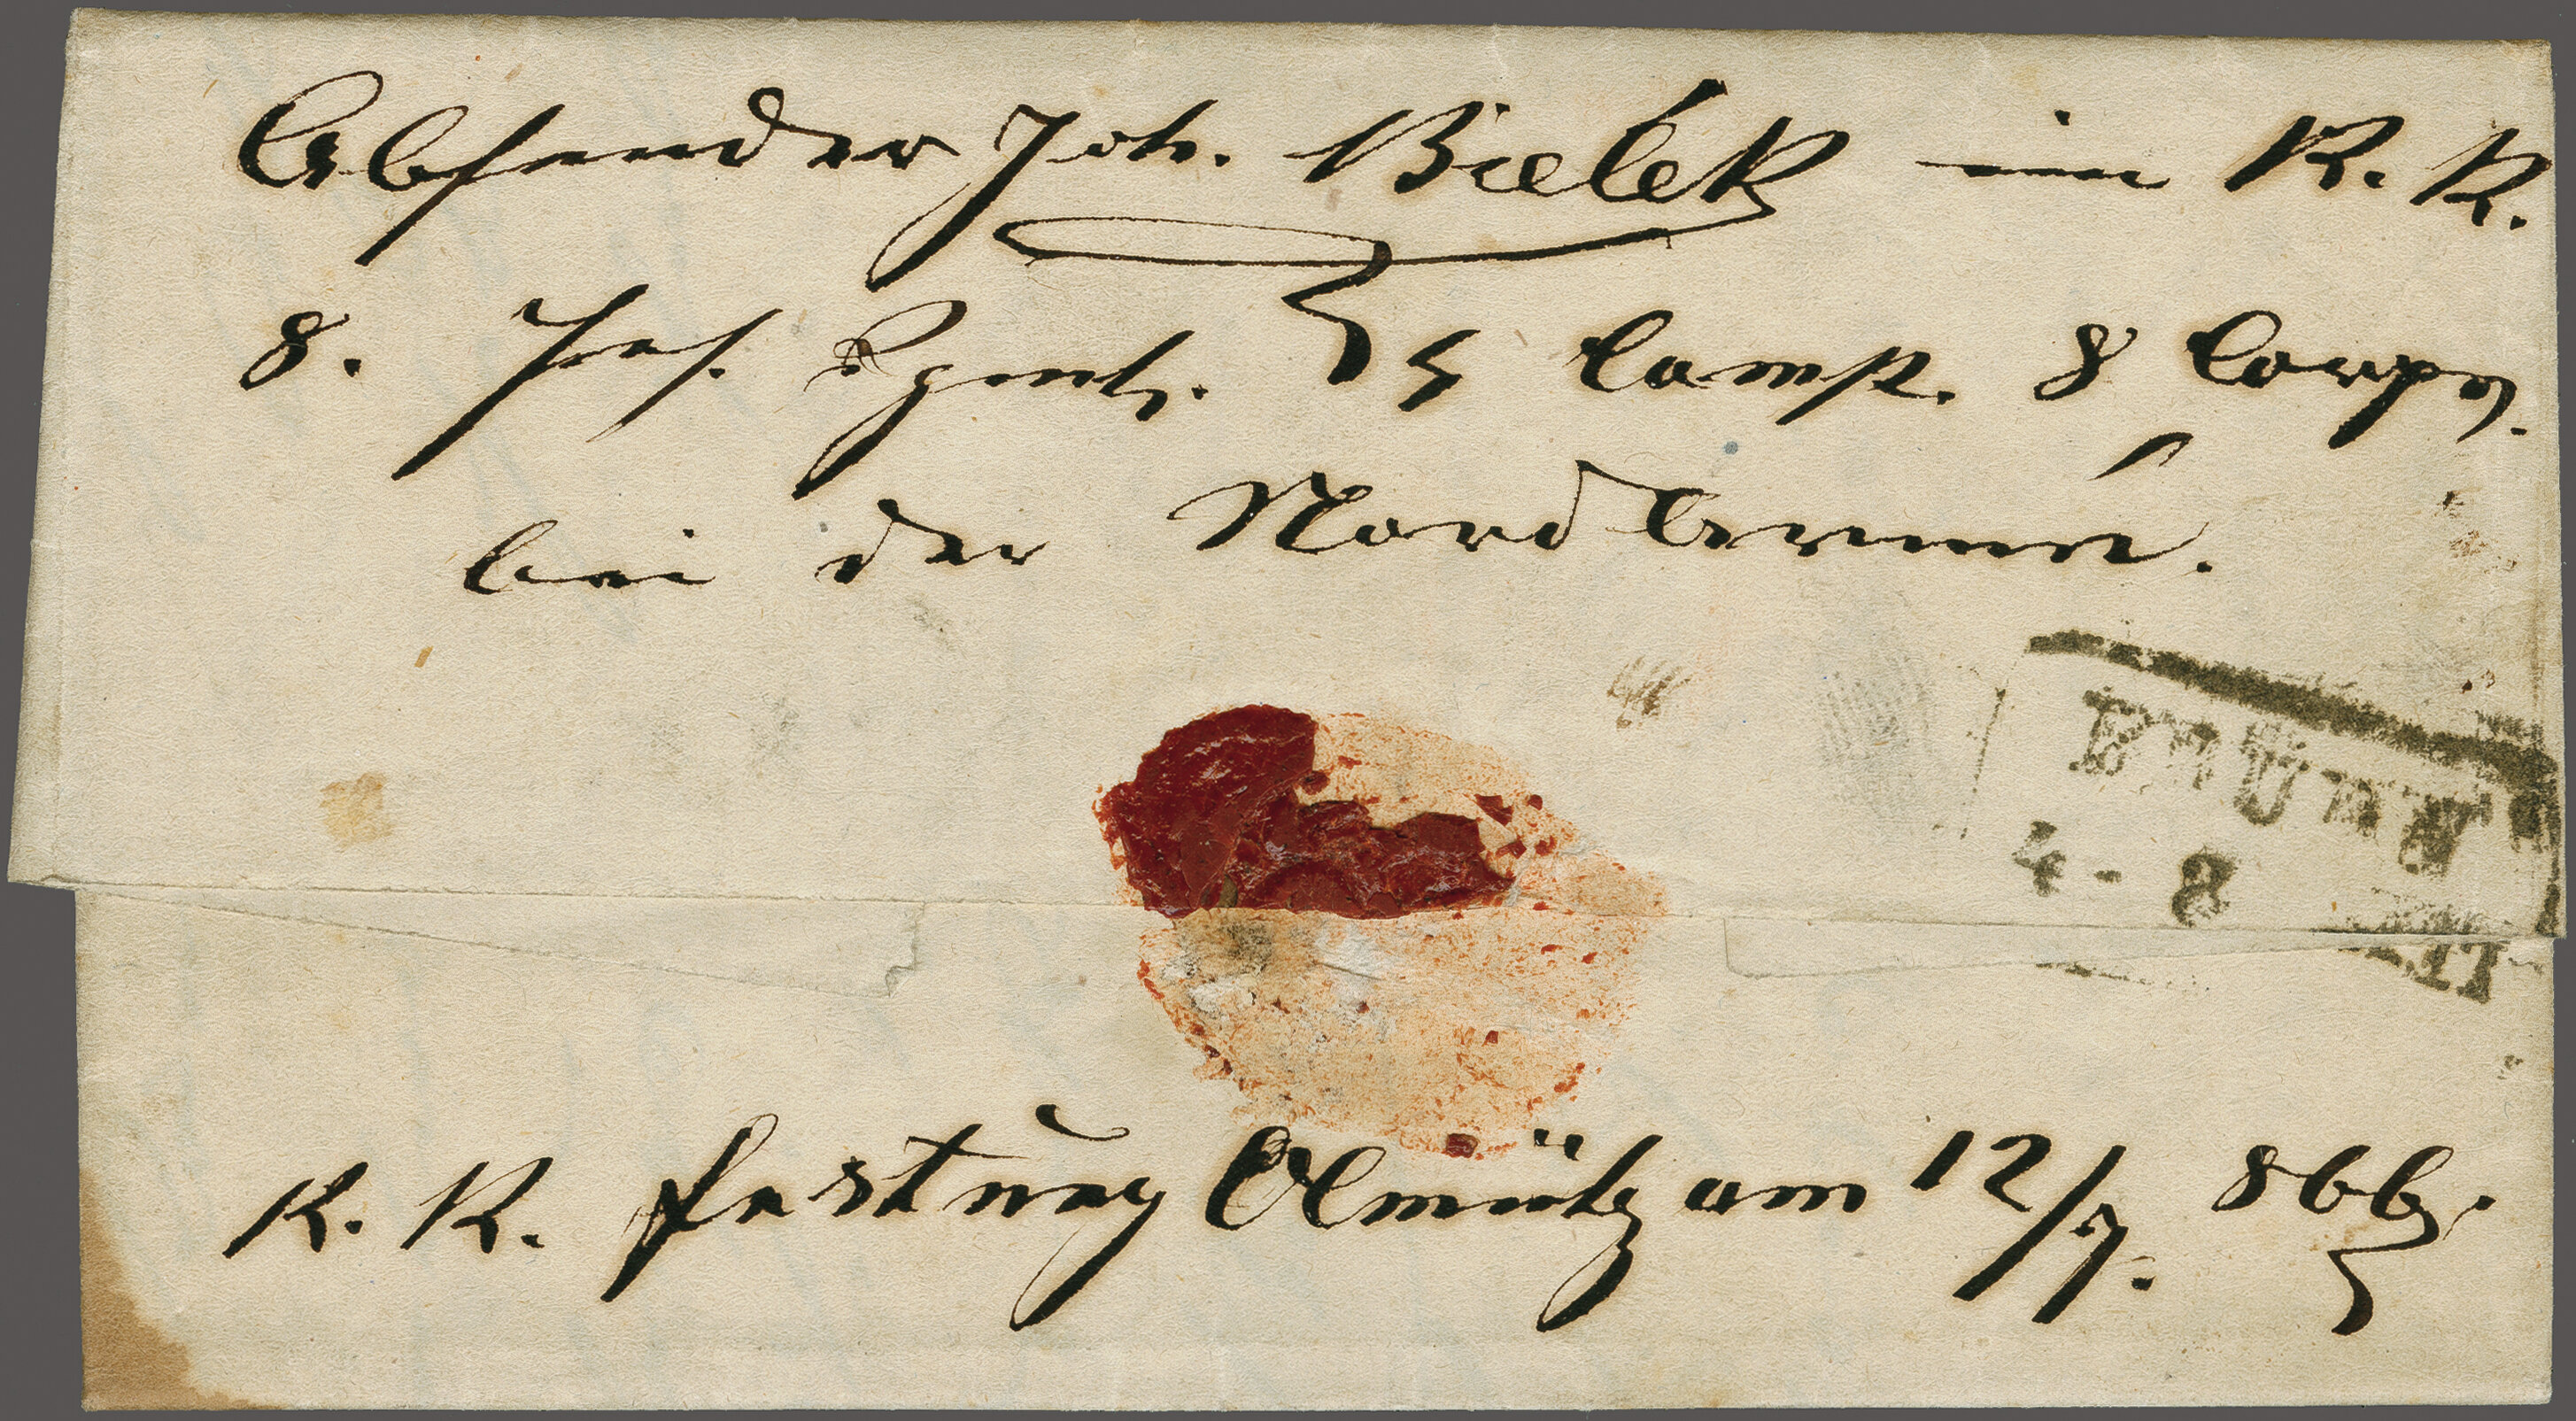 Absender Joh. Bielek im K. K.
8. Inf. Rgmt. 5 Comp. 8 Corps.
bei der Nord Armée.
BRÜNN
4 - 8
K. K. Festung Olmütz am 12/7. 866.